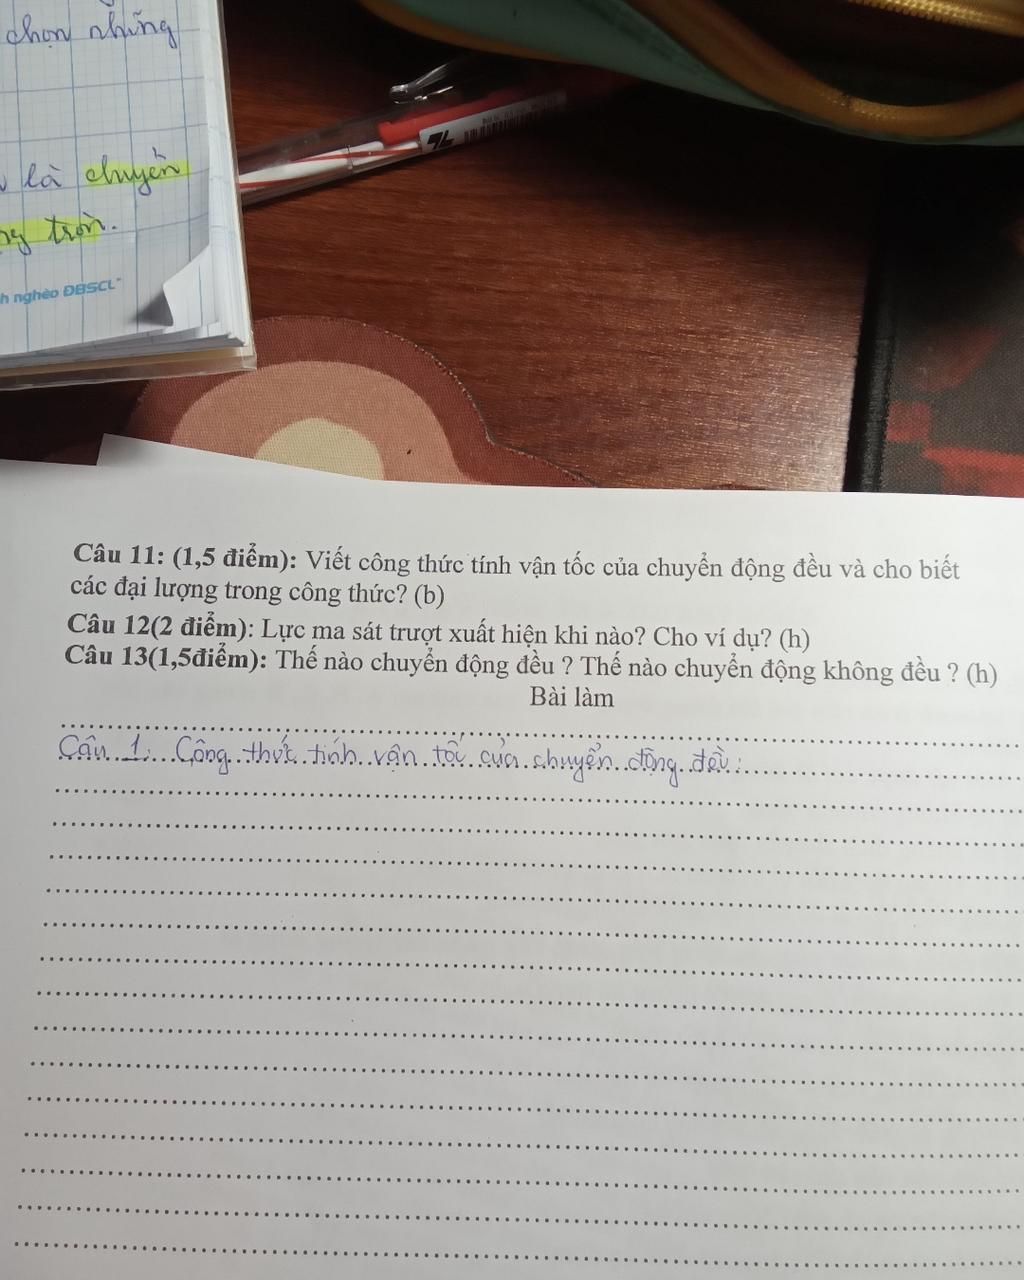 chọn những
là chuyển
tròn.
h nghèo ĐBSCL"
Câu 11: (1,5 điểm): Viết công thức tính vận tốc của chuyển động đều và cho biết
các đại lượng trong công thức? (b)
Câu 12(2 điểm): Lực ma sát trượt xuất hiện khi nào? Cho ví dụ? (h)
Câu 13(1,5điểm): Thế nào chuyển động đều ? Thế nào chuyển động không đều ? (h)
Bài làm
Câu 1: Công thức tính vận tốc của chuyển động đều: